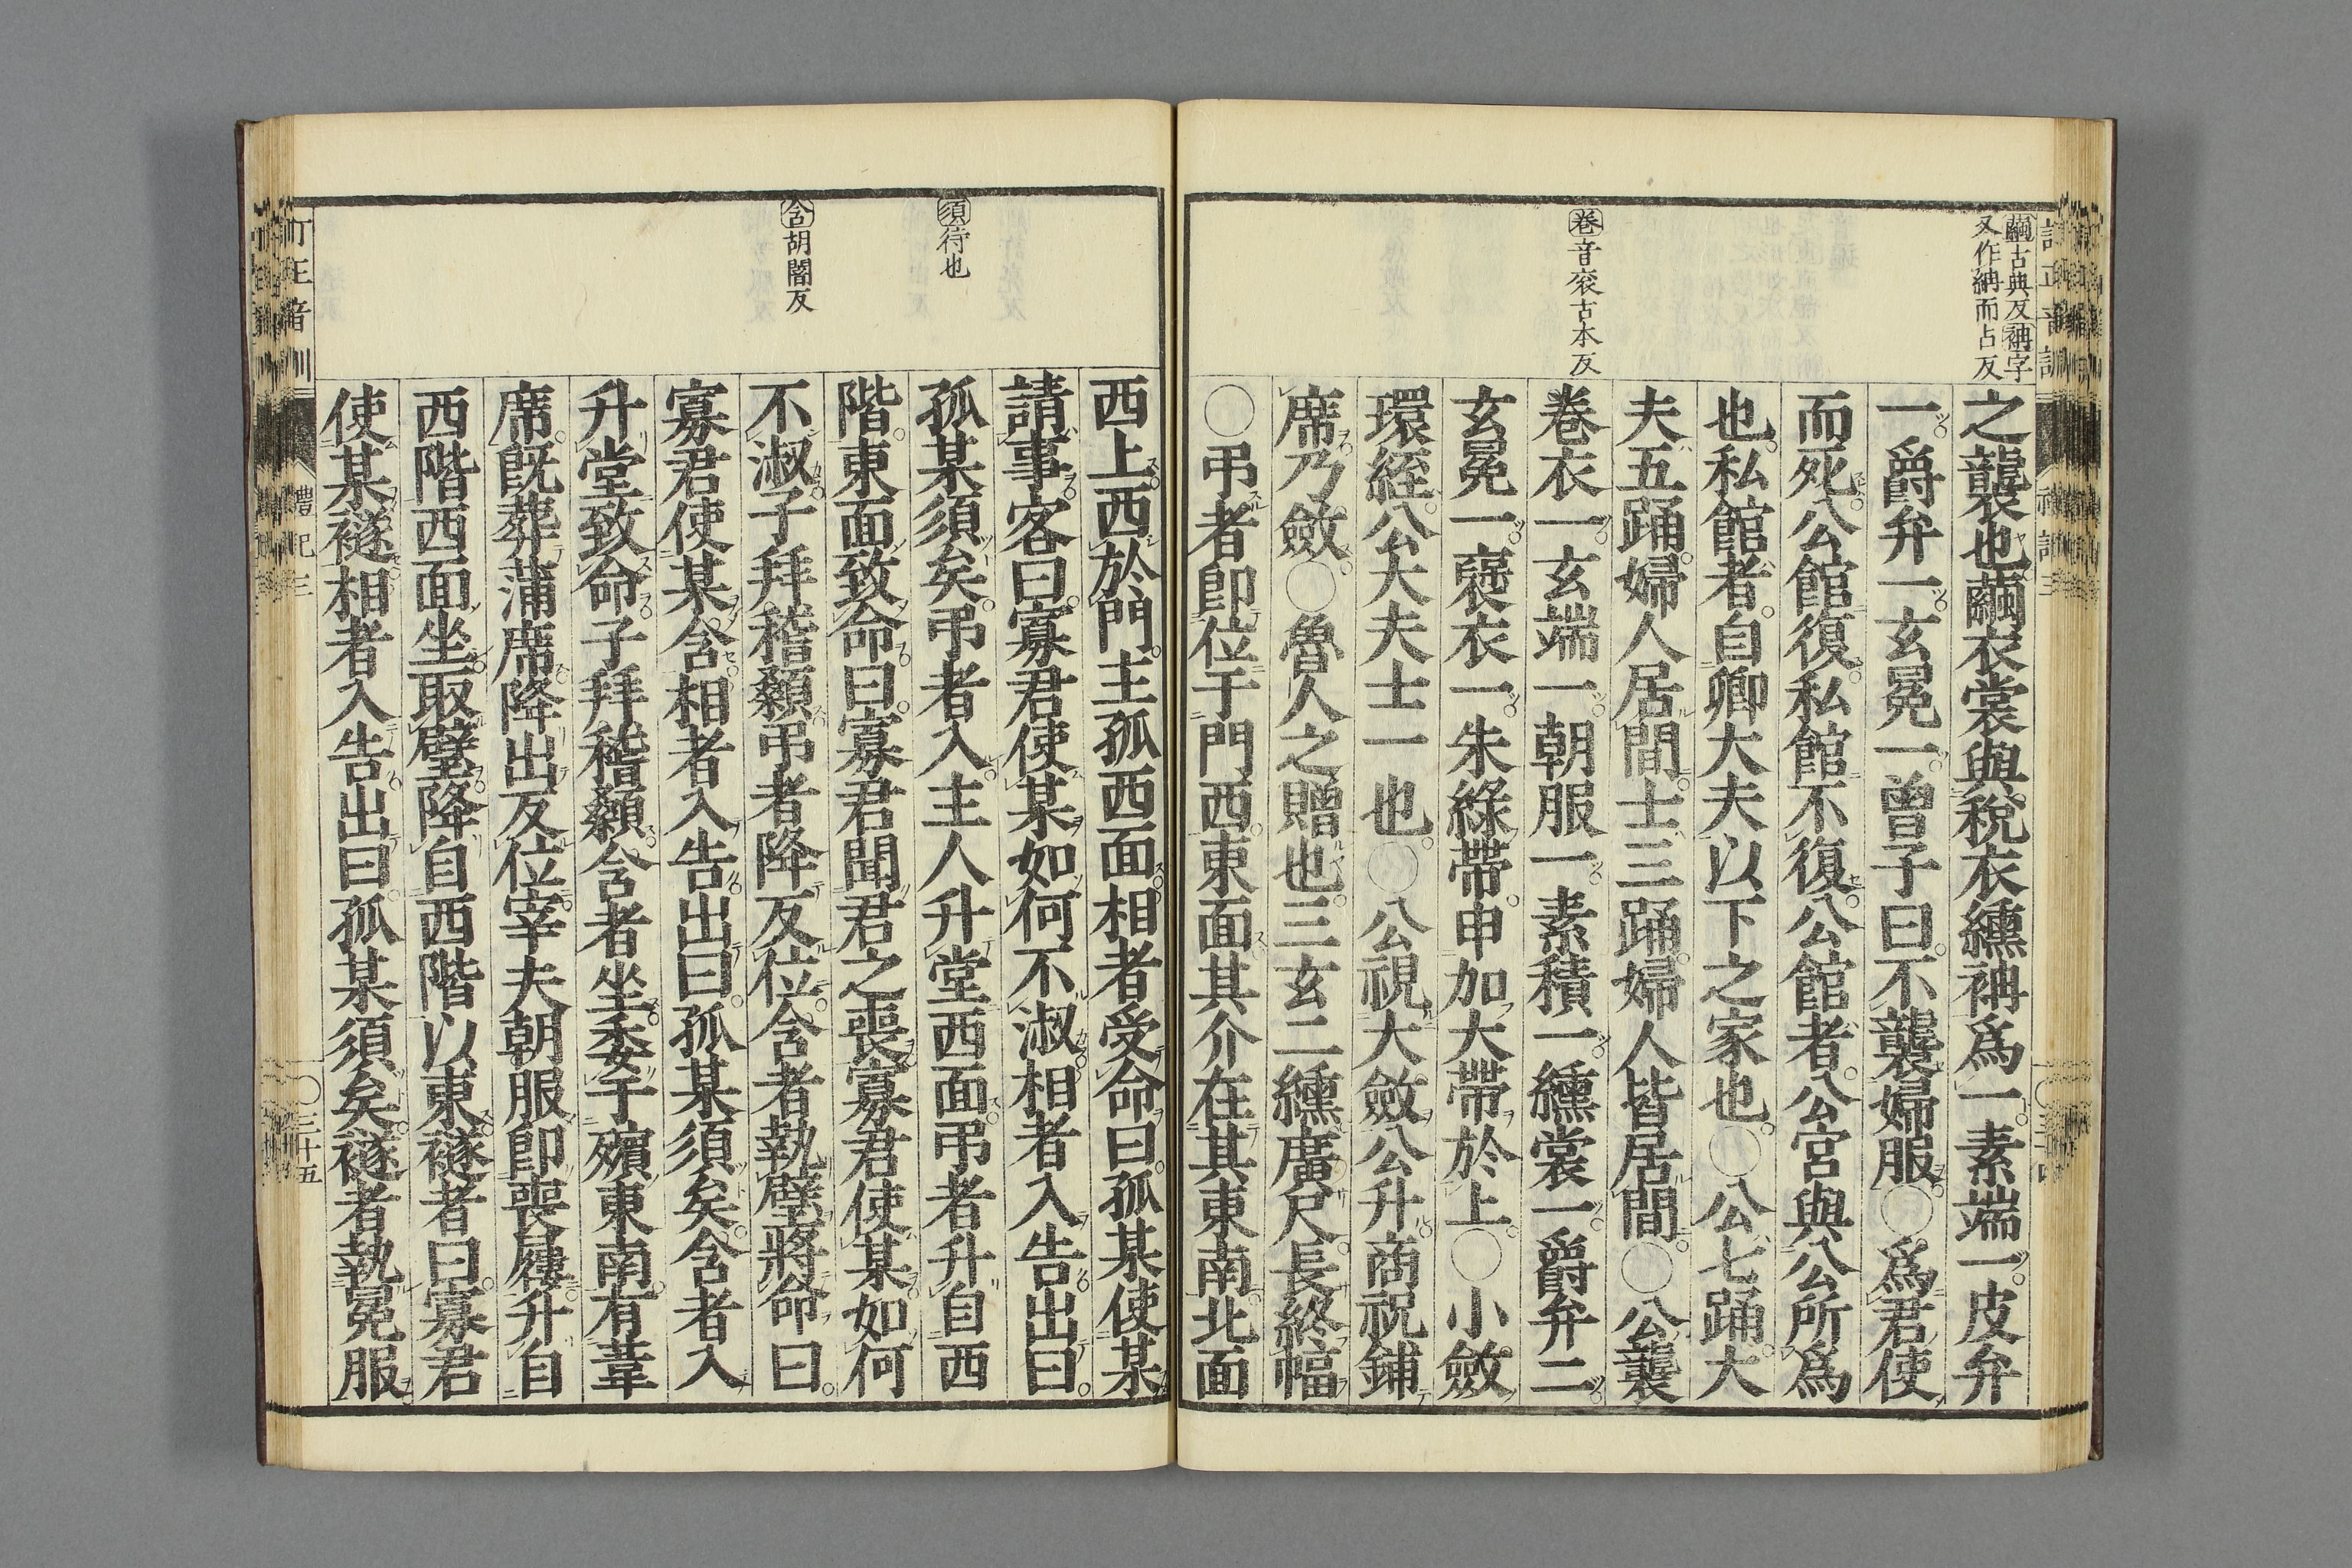 繭古典反袡字
又作䌂而占反
卷音衮古本反
之襲也繭衣裳與稅衣纁袡爲一素端一皮弁
一爵弁一玄冕一曾子曰不襲婦服○爲君使
而死公館復私館不復公館者公宮與公所爲
也私館者自卿大夫以下之家也○公七踊大
夫五踊婦人居間士三踊婦人皆居間○公襲
卷衣一玄端一朝服一素積一纁裳一爵弁二
玄冕一襃衣一朱綠帶申加大帶於上○小斂
環絰公大夫士一也○公視大斂公升商祝鋪
席乃斂○魯人之贈也三玄二纁廣尺長終幅
○弔者卽位于門西東面其介在其東南北面
須待也
含胡闇反
西上西於門主孤西面相者受命曰孤某使某
請事客曰寡君使某如何不淑相者入告出曰
孤某須矣弔者入主人升堂西面弔者升自西
階東面致命曰寡君聞君之喪寡君使某如何
不淑子拜稽顙弔者降反位含者執璧將命曰
寡君使某含相者入告出曰孤某須矣含者入
升堂致命子拜稽顙含者坐委于殯東南有葦
席旣葬蒲席降出反位宰夫朝服卽喪屨升自
西階西面坐取璧降自西階以東襚者曰寡君
使某襚相者入告出曰孤某須矣襚者執冕服
訂正音訓
禮記三
三十五